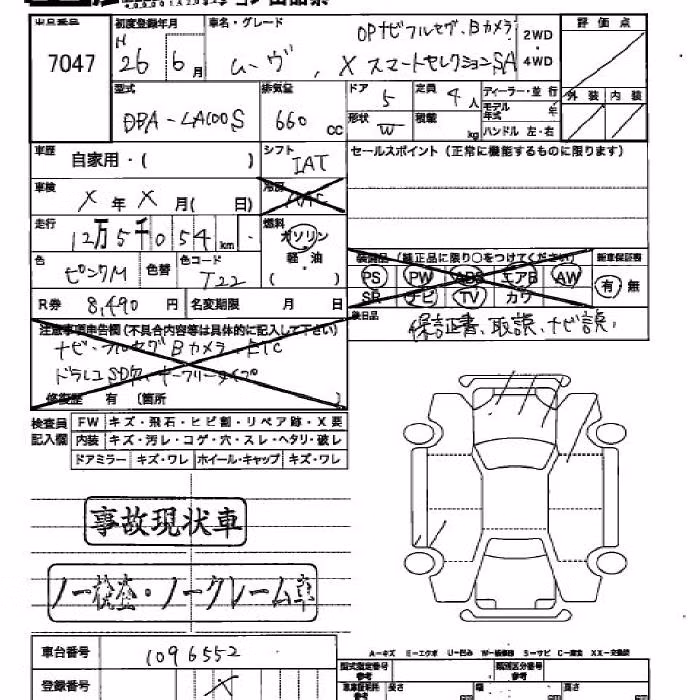 出品番号 7047
初度登録年月 H 26 6月
車名・グレード OPナビフルセグ.Bカメラ
ムーヴ , X スマートセレクションSA
2WD
4WD
評価点
外装 内装
型式 DBA-LA100S
排気量 660 cc
ドア 5 定員 4人
形状 W 積載 kg
ディーラー・並行
モデル年式 年
ハンドル 左・右
車歴 自家用・( )
シフト IAT
セールスポイント (正常に機能するものに限ります)
車検 X 年 X 月( 日)
冷房 AAC
走行 12万5千054 km
燃料 ガソリン
軽・油
( )
色 ピンクM 色替 色コード T22
装備品 (純正品に限り○をつけてください)
PS PW ABS エアB AW
SR ナビ TV カワ
新車保証書 有 無
R券 8,490 円 名変期限 月 日
後日品 保証書、取説、ナビ説.
注意事項申告欄(不具合内容等は具体的に記入して下さい)
ナビ・フルセグBカメラ.ETC
ドラレコSD欠.キーフリータイプ
修復歴 有 〔箇所 〕
検査員記入欄
FW キズ・飛石・ヒビ割・リペア跡・X要
内装 キズ・汚レ・コゲ・穴・スレ・ヘタリ・破レ
ドアミラー キズ・ワレ ホイール・キャップ キズ・ワレ
事故現状車
ノー検査・ノークレーム車
車台番号 1096552
登録番号 X
A-キズ E-エクボ U-凹み W-補修跡 S-サビ C-腐食 XX-交換済
型式指定番号 参考
類別区分番号 参考
長さ 幅 高さ